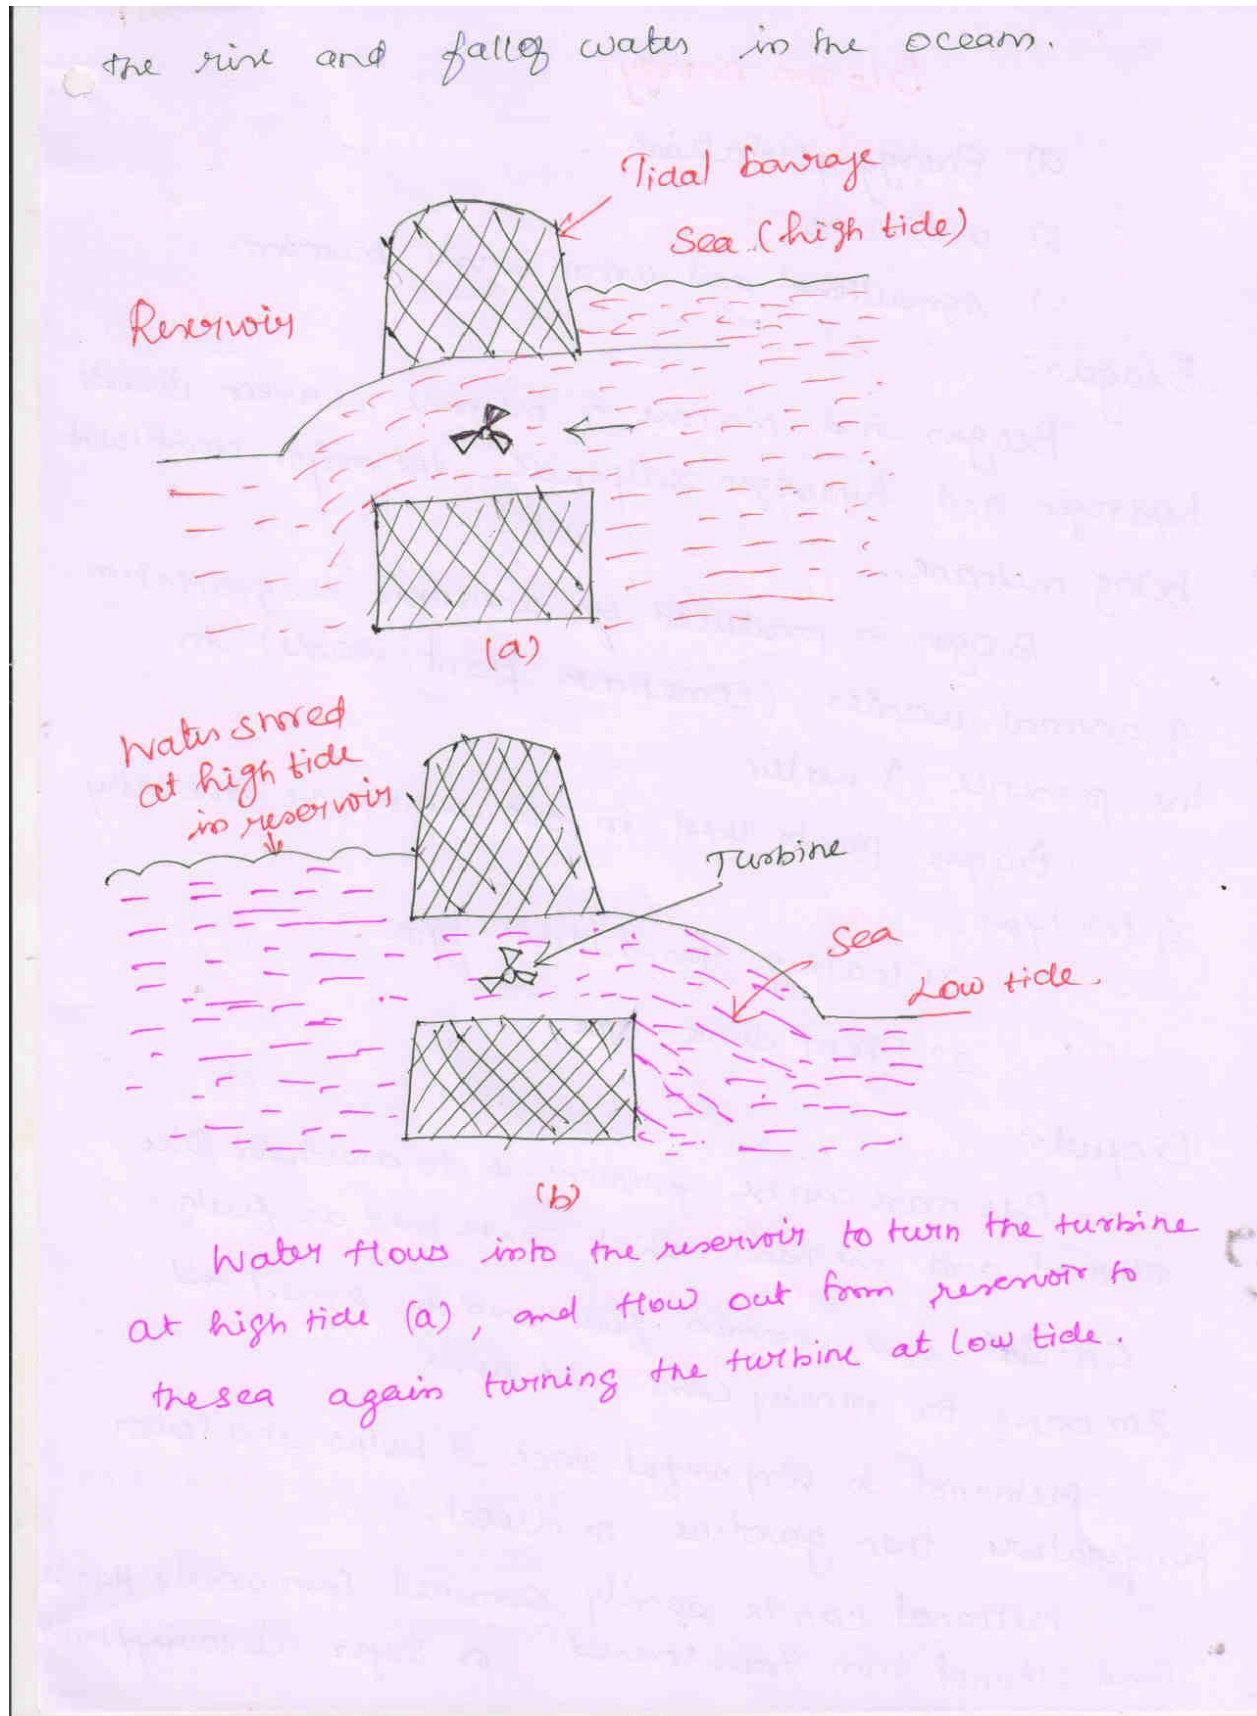 the rise and fall of water in the ocean.
Tidal barrage
Sea (high tide)
Reservoir
(a)
Water stored
at high tide
in reservoir
Turbine
Sea
Low tide.
(b)
Water flows into the reservoir to turn the turbine
at high tide (a), and flow out from reservoir to
the sea again turning the turbine at low tide.